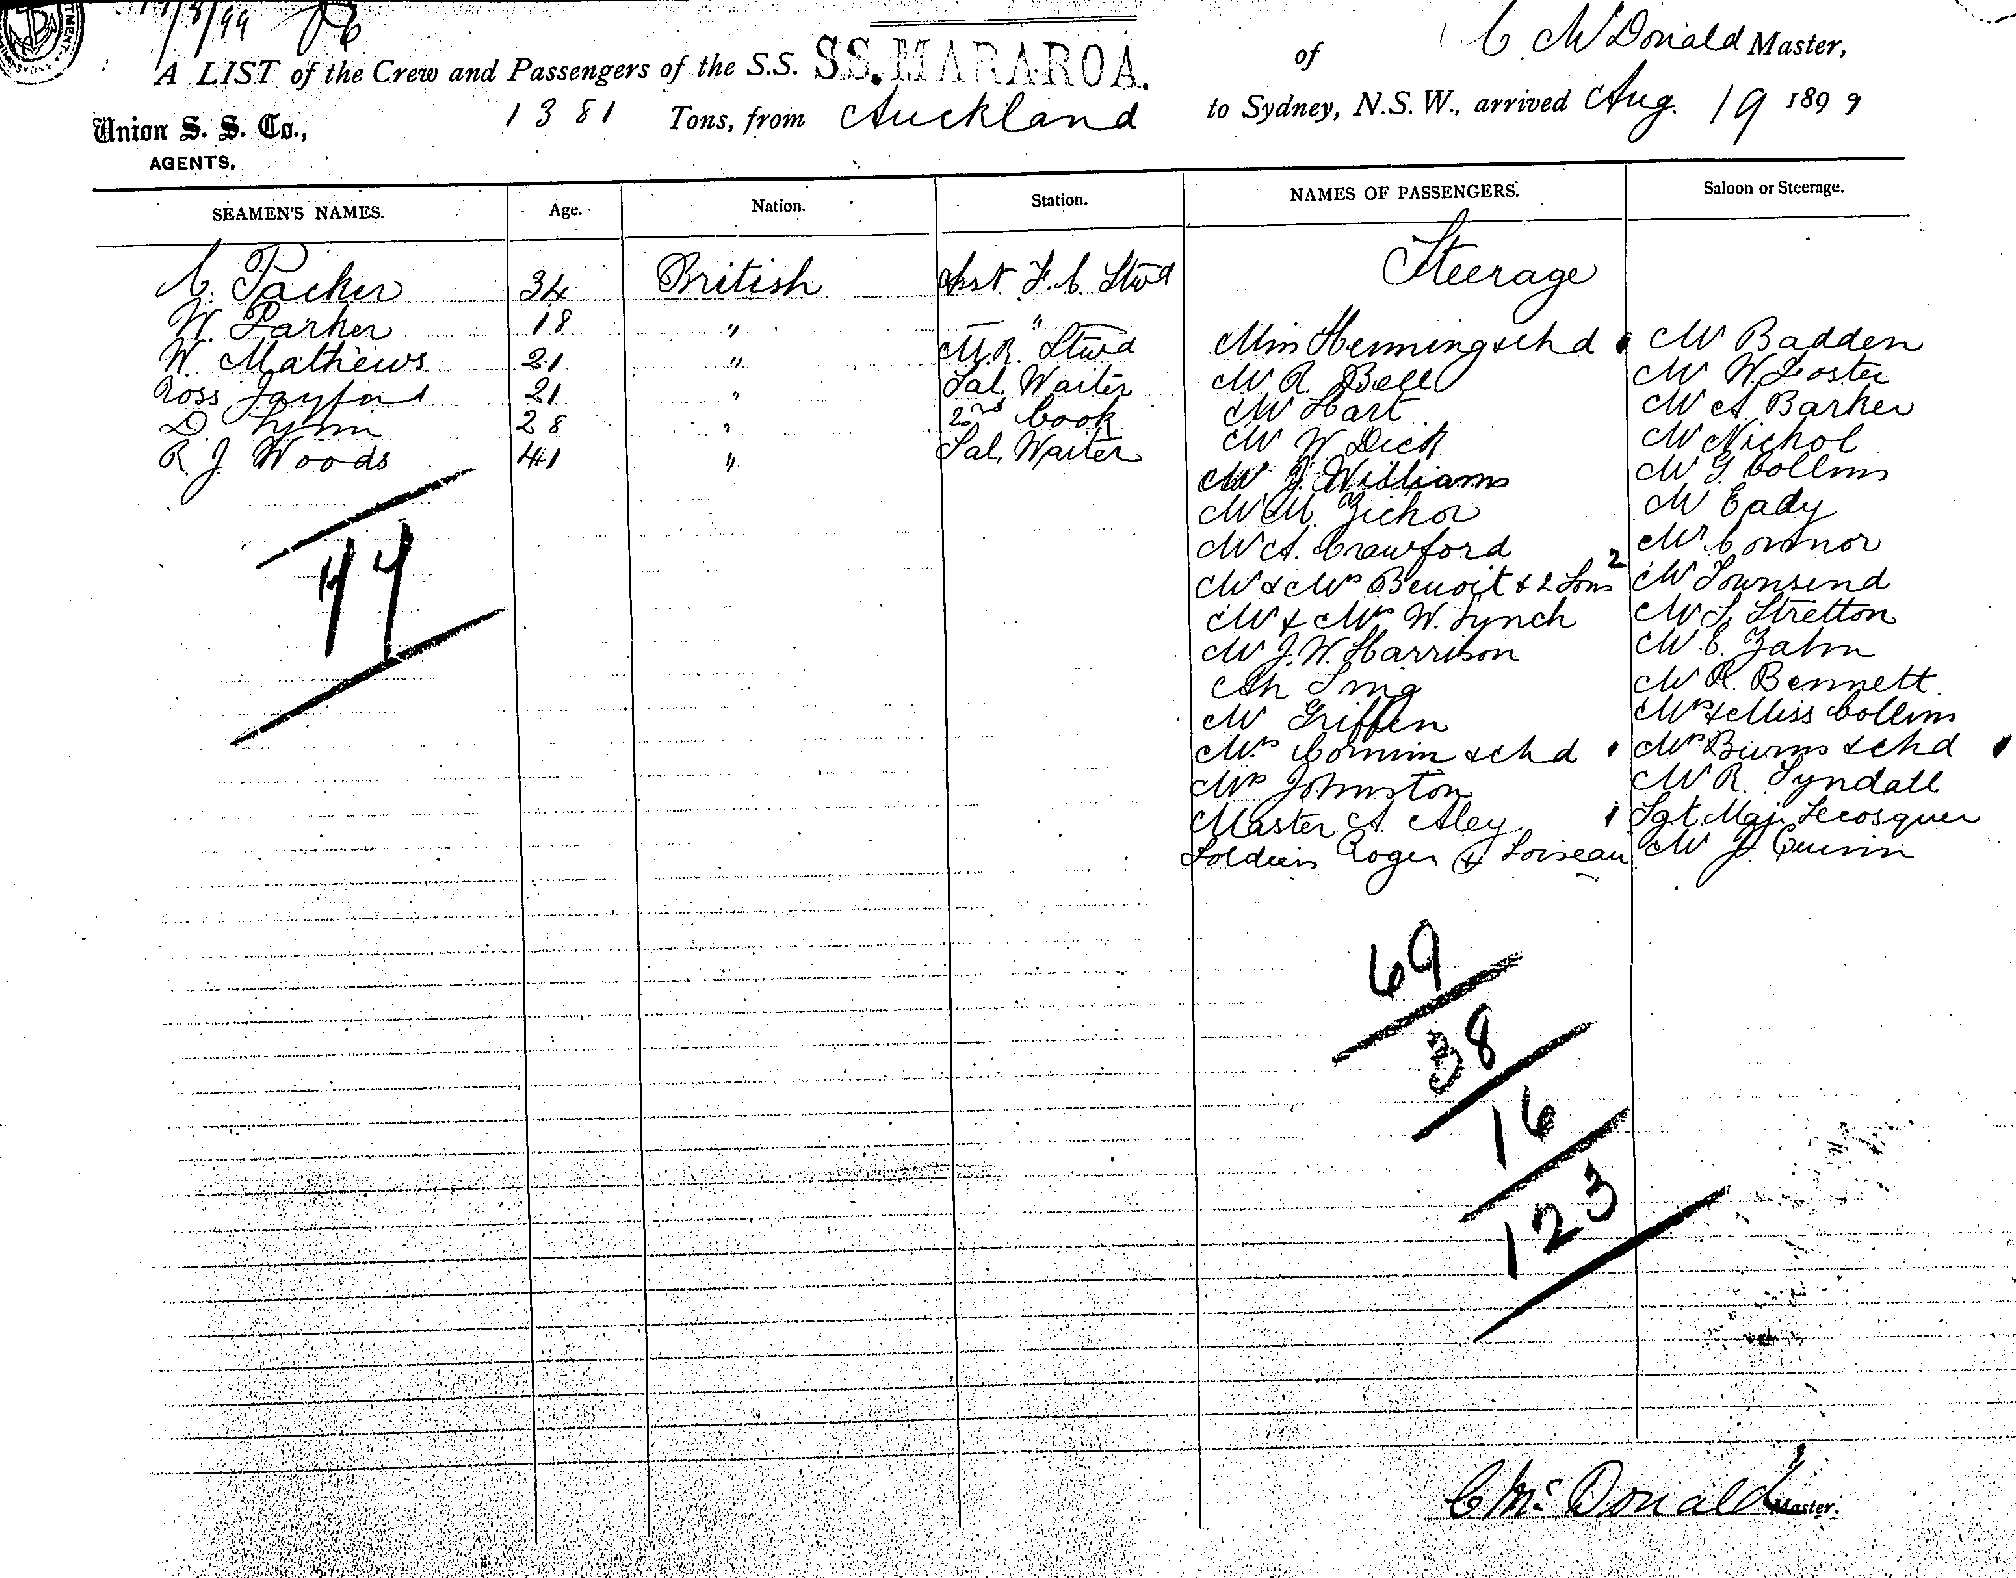 /8/99
A LIST of the Crew and Passengers of the S.S. SS. MARAROA. of C. McDonald Master,
Union S. S. Co., 1381 Tons, from Auckland to Sydney, N.S.W., arrived Aug. 19 1899
AGENTS.
SEAMEN'S NAMES. Age. Nation. Station. NAMES OF PASSENGERS. Saloon or Steerage.
Steerage
C. Packer 34 British Asst F. C. Stwd
W. Parker 18 " "
W. Mathews 21 " Stwd Mrs Henning & chd Mr Badden
Ross 21 " Sal. Waiter Mr R. Bell Mr W Foster
D. Flynn 28 " 2nd Cook Mr Hart Mr A Barker
R J. Woods 41 " Sal. Waiter Mr W Dick Mr Nichol
Mr J. Williams Mr G Collins
Mr M. Mr Eady
Mr A. Crawford Mr Connor
Mr & Mrs Benoit & 2 Sons 2 Mr Townsend
Mr & Mrs W. Lynch Mr S. Stretton
Mr J. W. Harrison Mr E. Zahn
Ah Sing Mr R. Bennett.
Mr Griffin Mrs & Miss Collins
Mrs & chd Mrs Burns & chd
Mrs Johnston Mr R. Lyndall
Master A. Aley Sgt. Maj. Lecosquer
Soldiers Roger & Loiseau Mr J. Quinn
44
69
38
16
123
C McDonald Master.